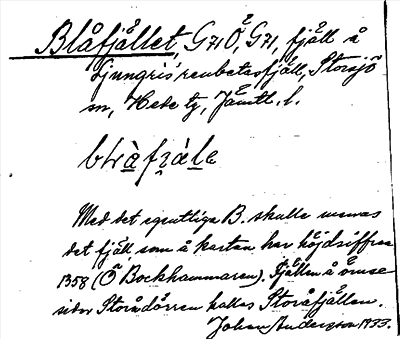 Blåfjället, G71Ö, G71, fjäll å
Ljungris' renbetesfjäll, Storsjö
sn, Hede tg, Jämtl. l.
Med det egentliga B. skulle menas
det fjäll som å kartan har höjdsiffran
1358 (Ö Bockhammaren). Fjällen å ömse
sidor Storådörren kallas Storåfjällen.
Johan Andersson 1933.